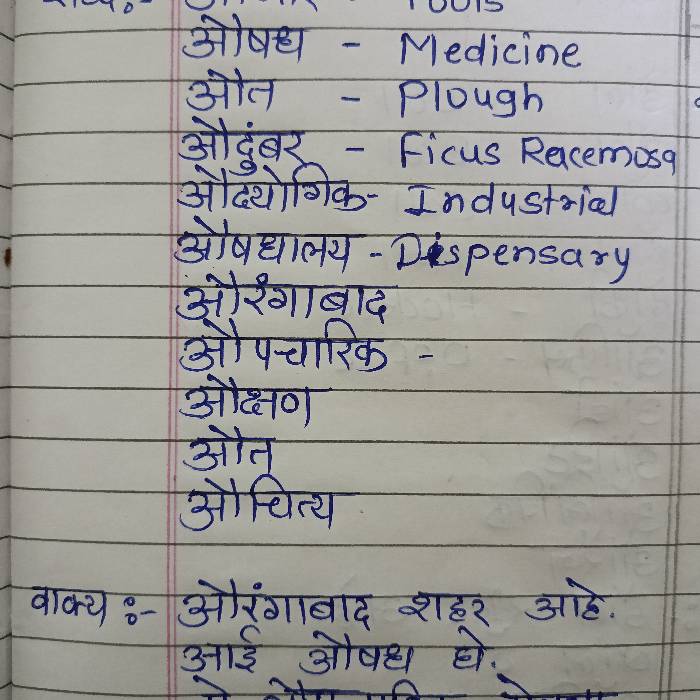 औजार - Tools
औषध - Medicine
औत - Plough
औदुंबर - Ficus Racemosa
औदयोगिक - Industrial
औषधालय - Dispensary
औरंगाबाद
औपचारिक -
औक्षण
औत
औचित्य
वाक्य :- औरंगाबाद शहर आहे.
आई औषध घे.